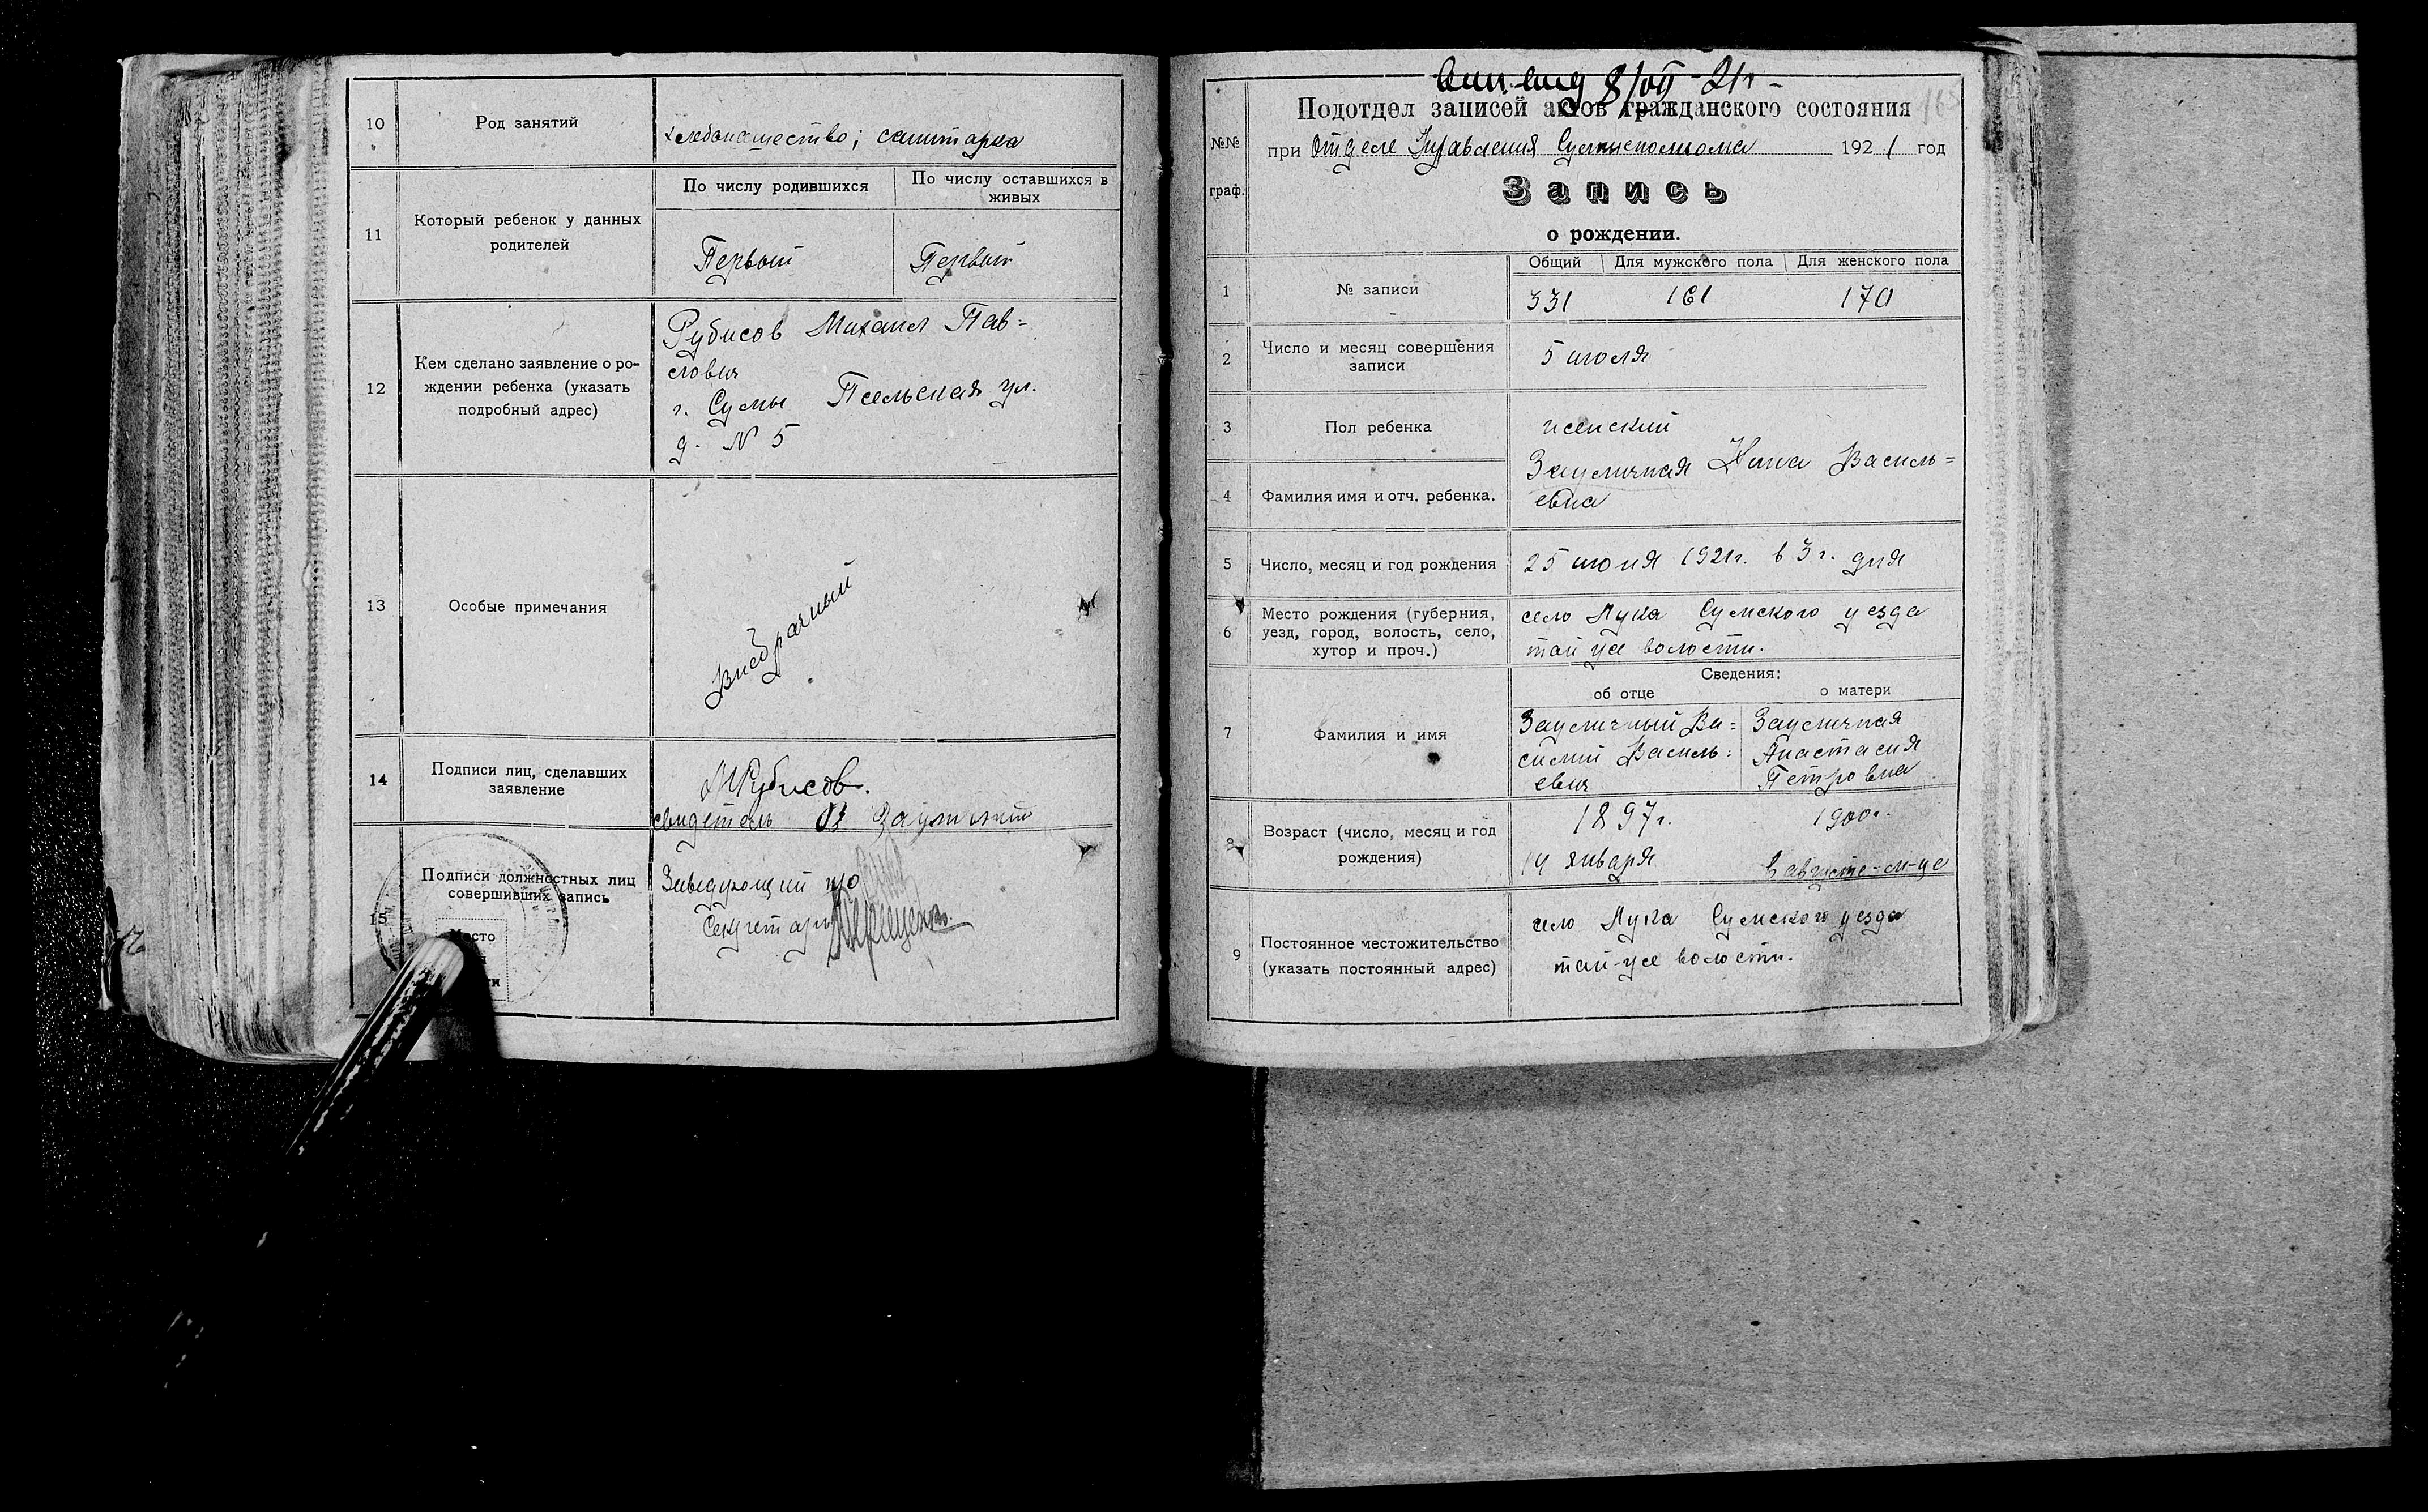 10
Род занятий
хлебопашество; санитарка
11
Который ребенок у данных
родителей
По числу родившихся
По числу оставшихся в
живых
Первый
Первый
12
Кем сделано заявление о ро-
ждении ребенка (указать
подробный адрес)
Рубисов Михаил Пав=
лович
г. Сумы Псельская ул.
д. № 5
13
Особые примечания
Внебрачный
14
Подписи лиц, сделавших
заявление
МРубисов.
свидетель
15
Подписи должностных лиц
совершивших запись
Место
Заведующий п/о
Секретарь
8/VII-21г-
Подотдел записей актов гражданского состояния
№№
граф.
при Отделе Управления Сумисполкома 1921 год
Запись
о рождении.
1
№ записи
Общий
Для мужского пола
Для женского пола
331
161
170
2
Число и месяц совершения
записи
5 июля
3
Пол ребенка
женский
4
Фамилия имя и отч. ребенка.
Зауличная Нина Василь=
евна
5
Число, месяц и год рождения
25 июня 1921г. в 3 г. дня
6
Место рождения (губерния,
уезд, город, волость, село,
хутор и проч.)
село Лука Сумского уезда
той же волости.
Сведения:
об отце
о матери
7
Фамилия и имя
Зауличный Ва=
силий Василь=
евич
Зауличная
Анастасия
Петровна
8
Возраст (число, месяц и год
рождения)
1897г.
14 января
1900г.
в августе-м-це
9
Постоянное местожительство
(указать постоянный адрес)
село Лука Сумского уезда
той-же волости.